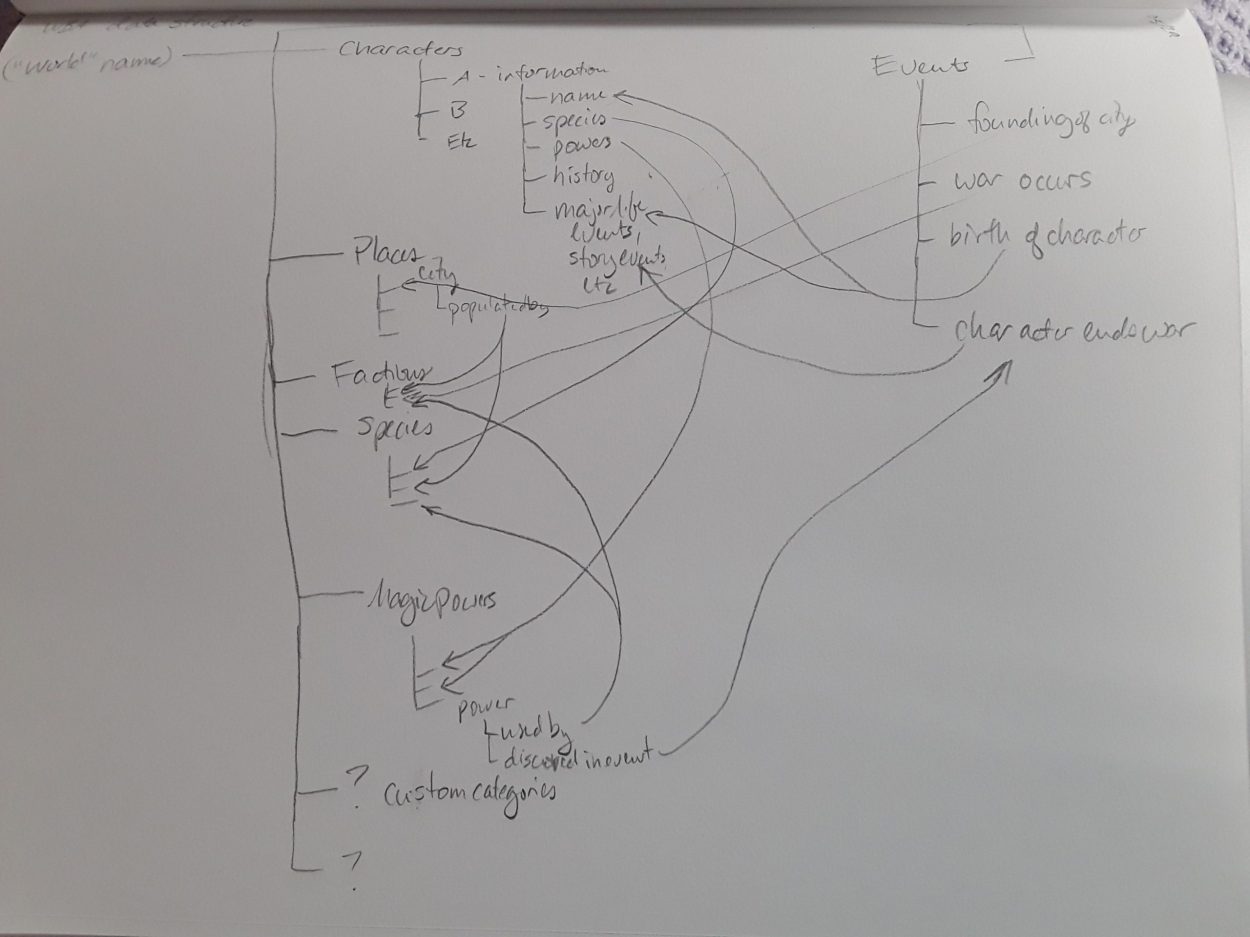 user data structure
("World" name)
Characters
A - information
name
species
powers
history
major life
events,
story events
etc
B
Etc
Places
City
populated by
Factions
Species
Magic Powers
power
used by
discovered in event
? Custom categories
?
Events
founding of city
war occurs
birth of character
character ends war